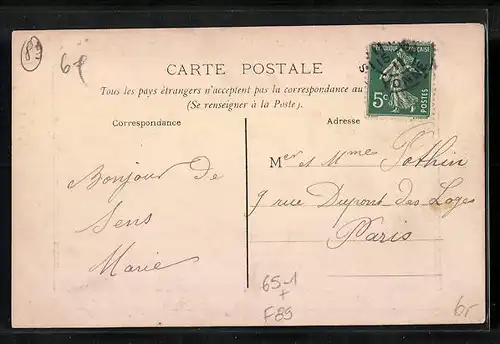 89
6f
CARTE POSTALE
Tous les pays étrangers n'acceptent pas la correspondance au
(Se renseigner à la Poste).
RÉPUBLIQUE FRANÇAISE
5c POSTES
Correspondance
Adresse
Bonjour de
Sens
Marie
Mer et Mme Pothin
9 rue Dupont des Loges
Paris
65-1
+
F89